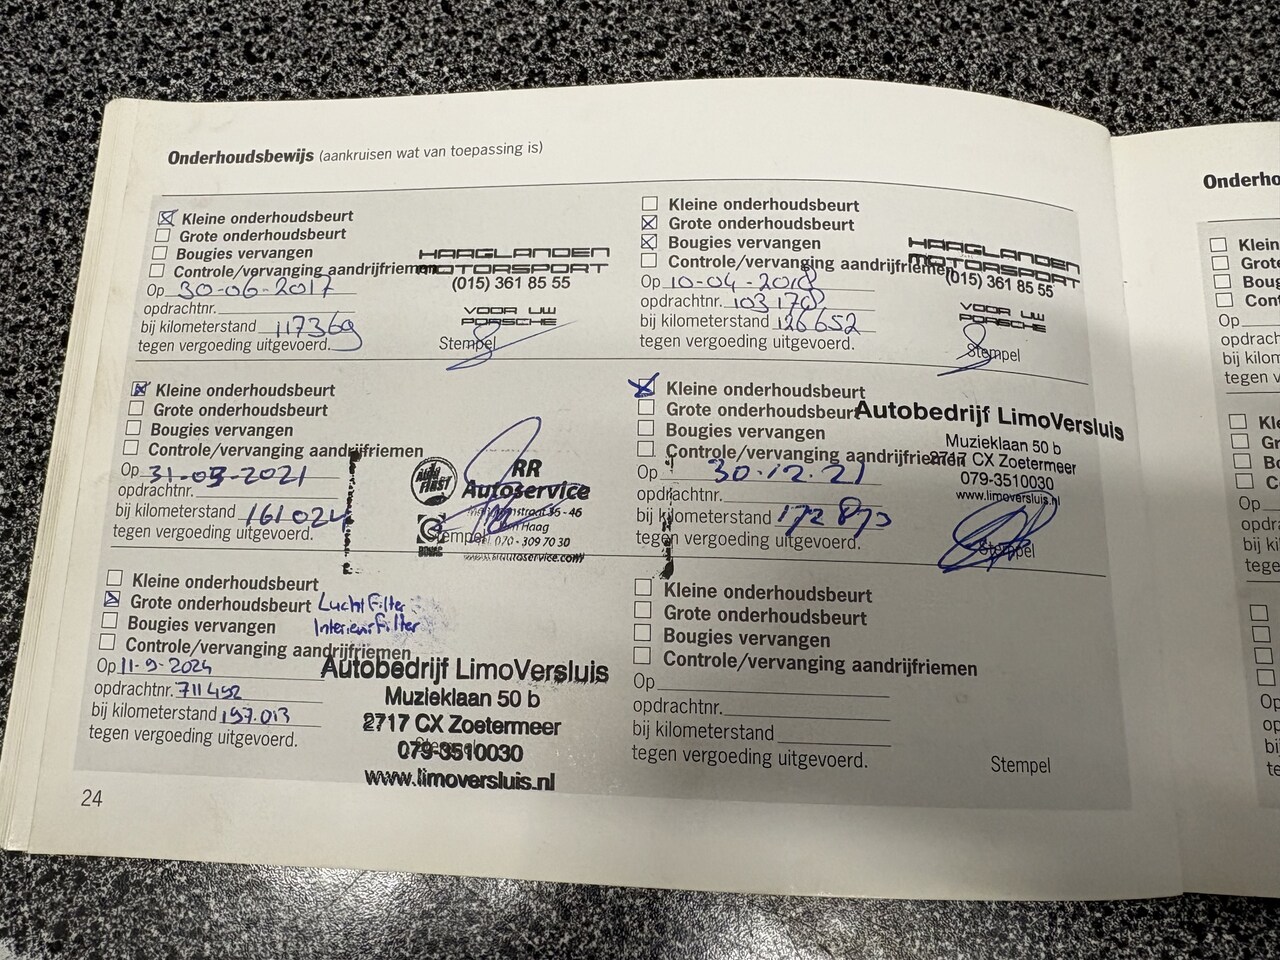 Onderhoudsbewijs (aankruisen wat van toepassing is)
Kleine onderhoudsbeurt
Grote onderhoudsbeurt
Bougies vervangen
Controle/vervanging aandrijfriemen
Op 30-06-2017
opdrachtnr.
bij kilometerstand 117369
tegen vergoeding uitgevoerd.
HAAGLANDEN
MOTORSPORT
(015) 361 85 55
VOOR UW
PORSCHE
Stempel
Kleine onderhoudsbeurt
Grote onderhoudsbeurt
Bougies vervangen
Controle/vervanging aandrijfriemen
Op 10-04-2018
opdrachtnr. 103178
bij kilometerstand 126652
tegen vergoeding uitgevoerd.
HAAGLANDEN
MOTORSPORT
(015) 361 85 55
VOOR UW
PORSCHE
Stempel
Kleine onderhoudsbeurt
Grote onderhoudsbeurt
Bougies vervangen
Controle/vervanging aandrijfriemen
Op 31-03-2021
opdrachtnr.
bij kilometerstand 161024
tegen vergoeding uitgevoerd.
AUTO
FIRST
RR
Autoservice
35 - 46
Haag
Tel. 070 - 309 70 30
BOVAG
Stempel
Kleine onderhoudsbeurt
Grote onderhoudsbeurt
Bougies vervangen
Controle/vervanging aandrijfriemen
Op 30.12.21
opdrachtnr.
bij kilometerstand 172 873
tegen vergoeding uitgevoerd.
Autobedrijf LimoVersluis
Muzieklaan 50 b
2717 CX Zoetermeer
079-3510030
www.limoversluis.nl
Stempel
Kleine onderhoudsbeurt
Grote onderhoudsbeurt Luchtfilter
Bougies vervangen Interieurfilter
Controle/vervanging aandrijfriemen
Op 11-9-2024
opdrachtnr. 711492
bij kilometerstand 197.013
tegen vergoeding uitgevoerd.
Autobedrijf LimoVersluis
Muzieklaan 50 b
2717 CX Zoetermeer
079-3510030
www.limoversluis.nl
Stempel
Kleine onderhoudsbeurt
Grote onderhoudsbeurt
Bougies vervangen
Controle/vervanging aandrijfriemen
Op
opdrachtnr.
bij kilometerstand
tegen vergoeding uitgevoerd.
Stempel
24
Onderho
Klein
Grote
Boug
Cont
Op
opdracht
bij kilom
tegen v
Kle
Gr
Bo
C
Op
opdr
bij ki
tege
Op
op
bi
te